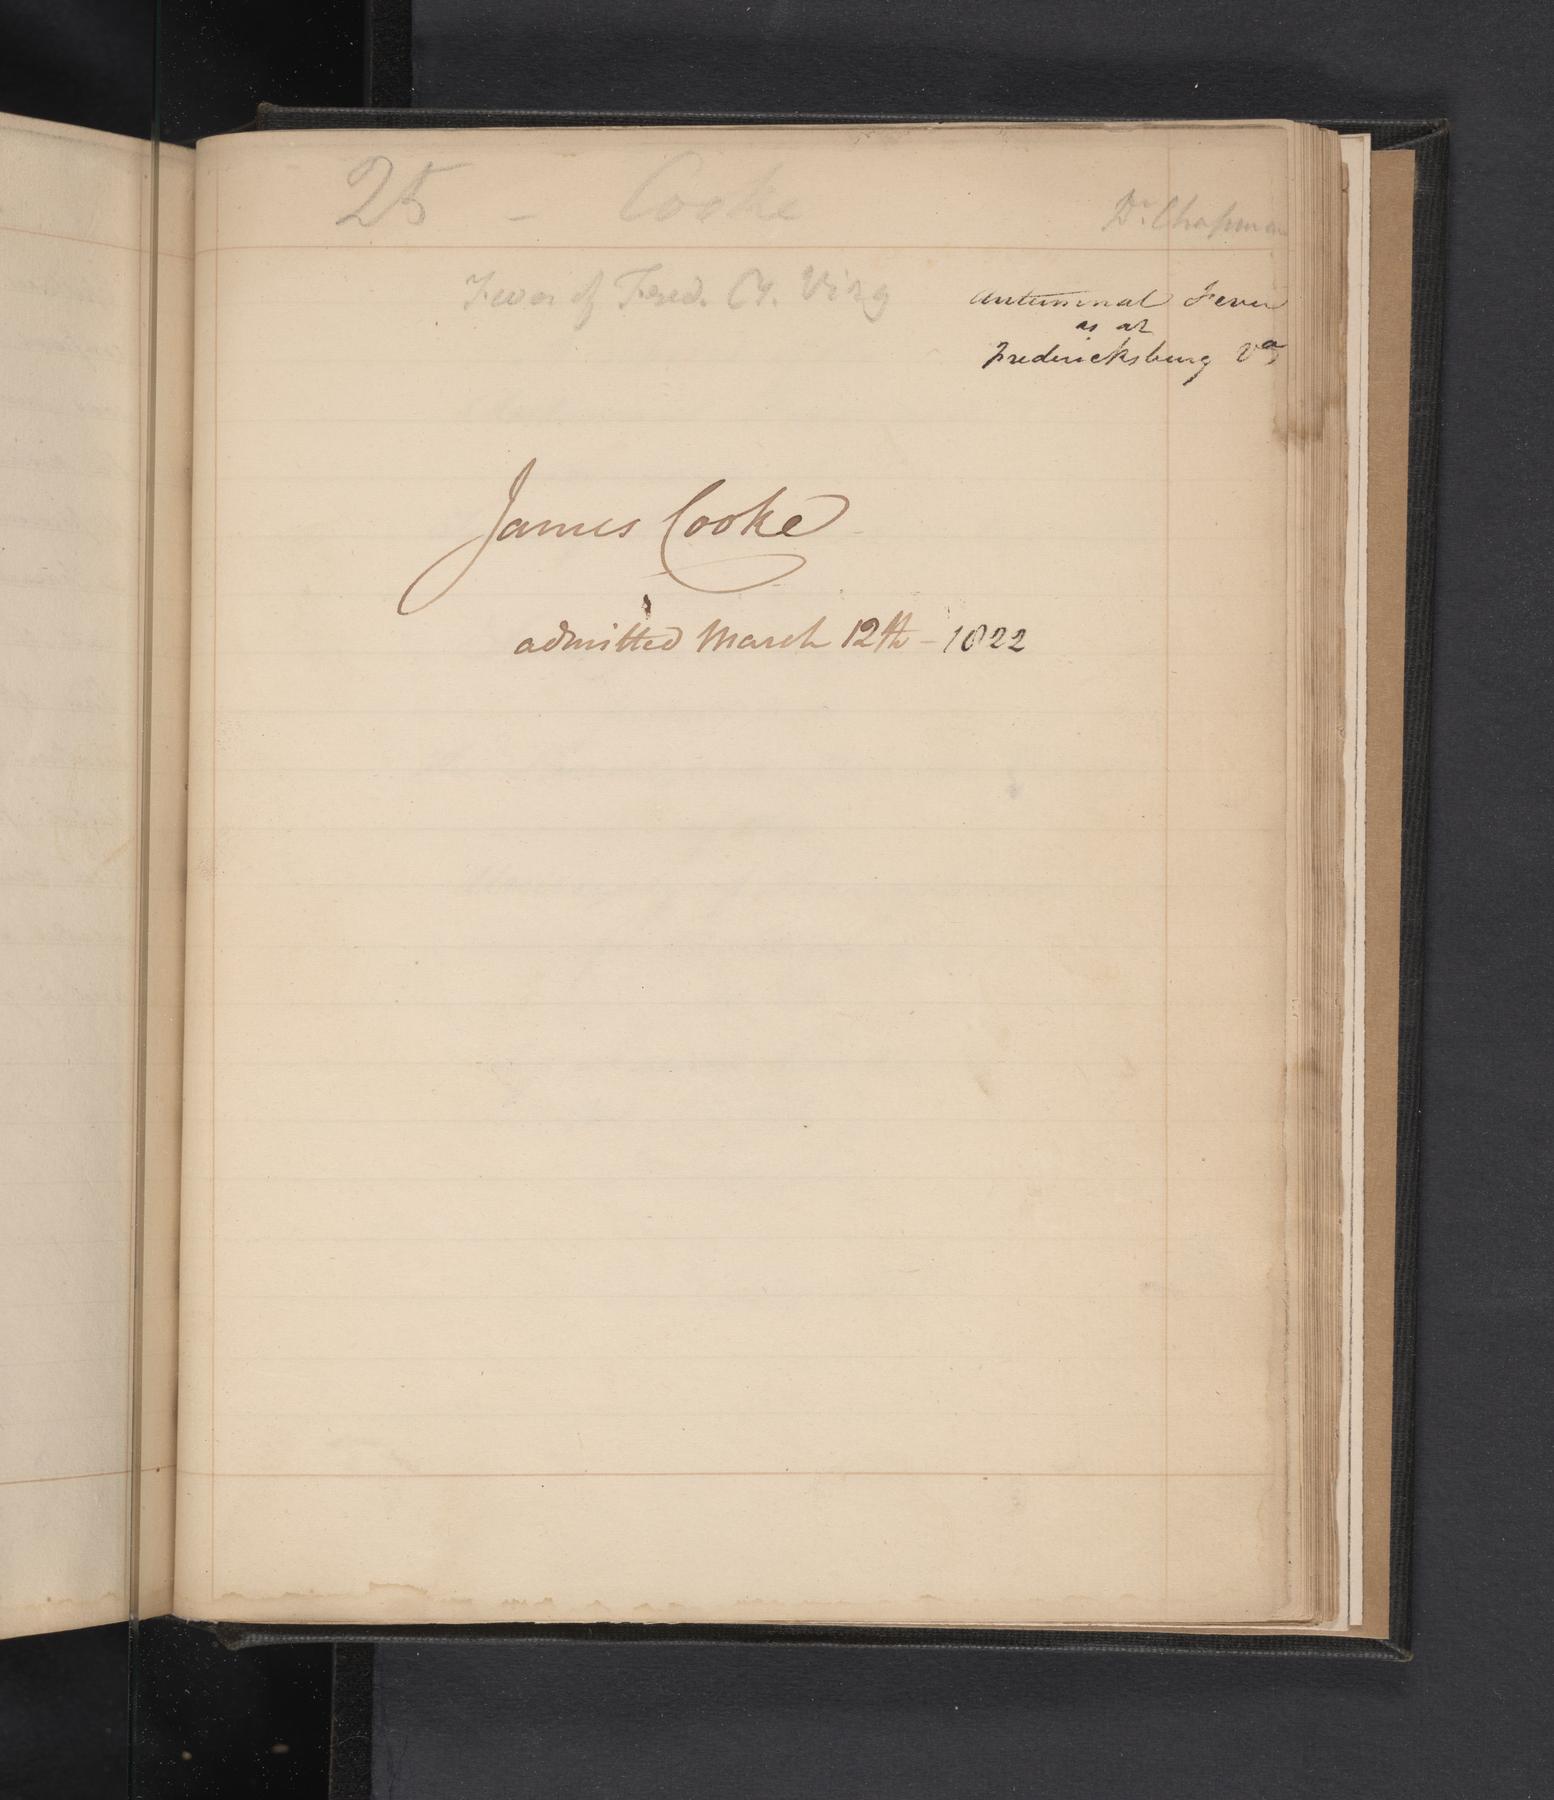 25 - Cooke
Dr. Chapman
Fever of Fred. Cy. Virg
Autumnal Fever
as at
Fredericksburg Va
James Cooke
admitted March 12th - 1822